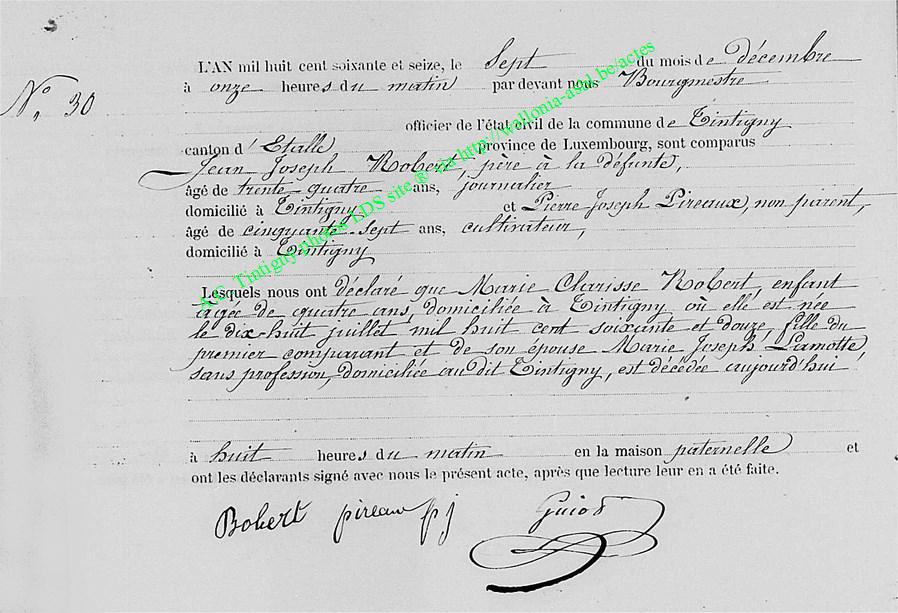 L'AN mil huit cent soixante et seize, le Sept du mois de décembre
N°. 30
à onze heures du matin par devant nous Bourgmestre
officier de l'état civil de la commune de Tintigny
canton d'Etalle province de Luxembourg, sont comparus
Jean Joseph Robert, père à la défunte,
âgé de trente-quatre ans, journalier
domicilié à Tintigny et Pierre Joseph Pireaux, non parent,
âgé de cinquante-sept ans, cultivateur,
domicilié à Tintigny
Lesquels nous ont déclaré que Marie Clarisse Robert, enfant
âgée de quatre ans, domiciliée à Tintigny où elle est née
le dix-huit juillet mil huit cent soixante et douze, fille du
premier comparant et de son épouse Marie Joseph Lamotte,
sans profession, domiciliée au dit Tintigny, est décédée aujourd'hui
à huit heures du matin en la maison paternelle et
ont les déclarants signé avec nous le présent acte, après que lecture leur en a été faite.
Robert pireau pj Guiot
A.C. Tintigny photos LDS site ® via http://wallonia-asal.be/actes